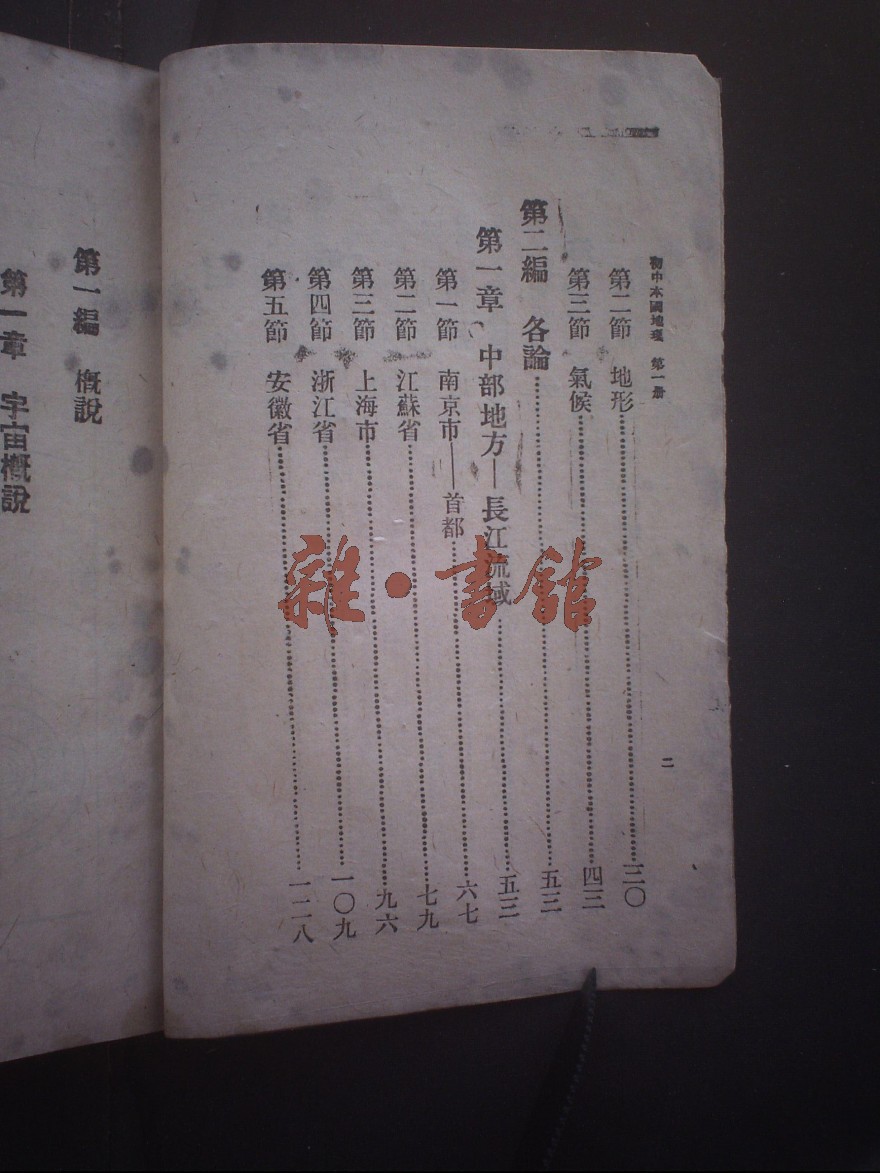 初中本國地理　第一册
二
第二節　地形……三〇
第三節　氣候……四三
第二編　各論……五三
第一章　中部地方——長江流域……五三
第一節　南京市——首都……六七
第二節　江蘇省……七九
第三節　上海市……九六
第四節　浙江省……一〇九
第五節　安徽省……一二八
第一編　概說
第一章　宇宙概說
雜·書館